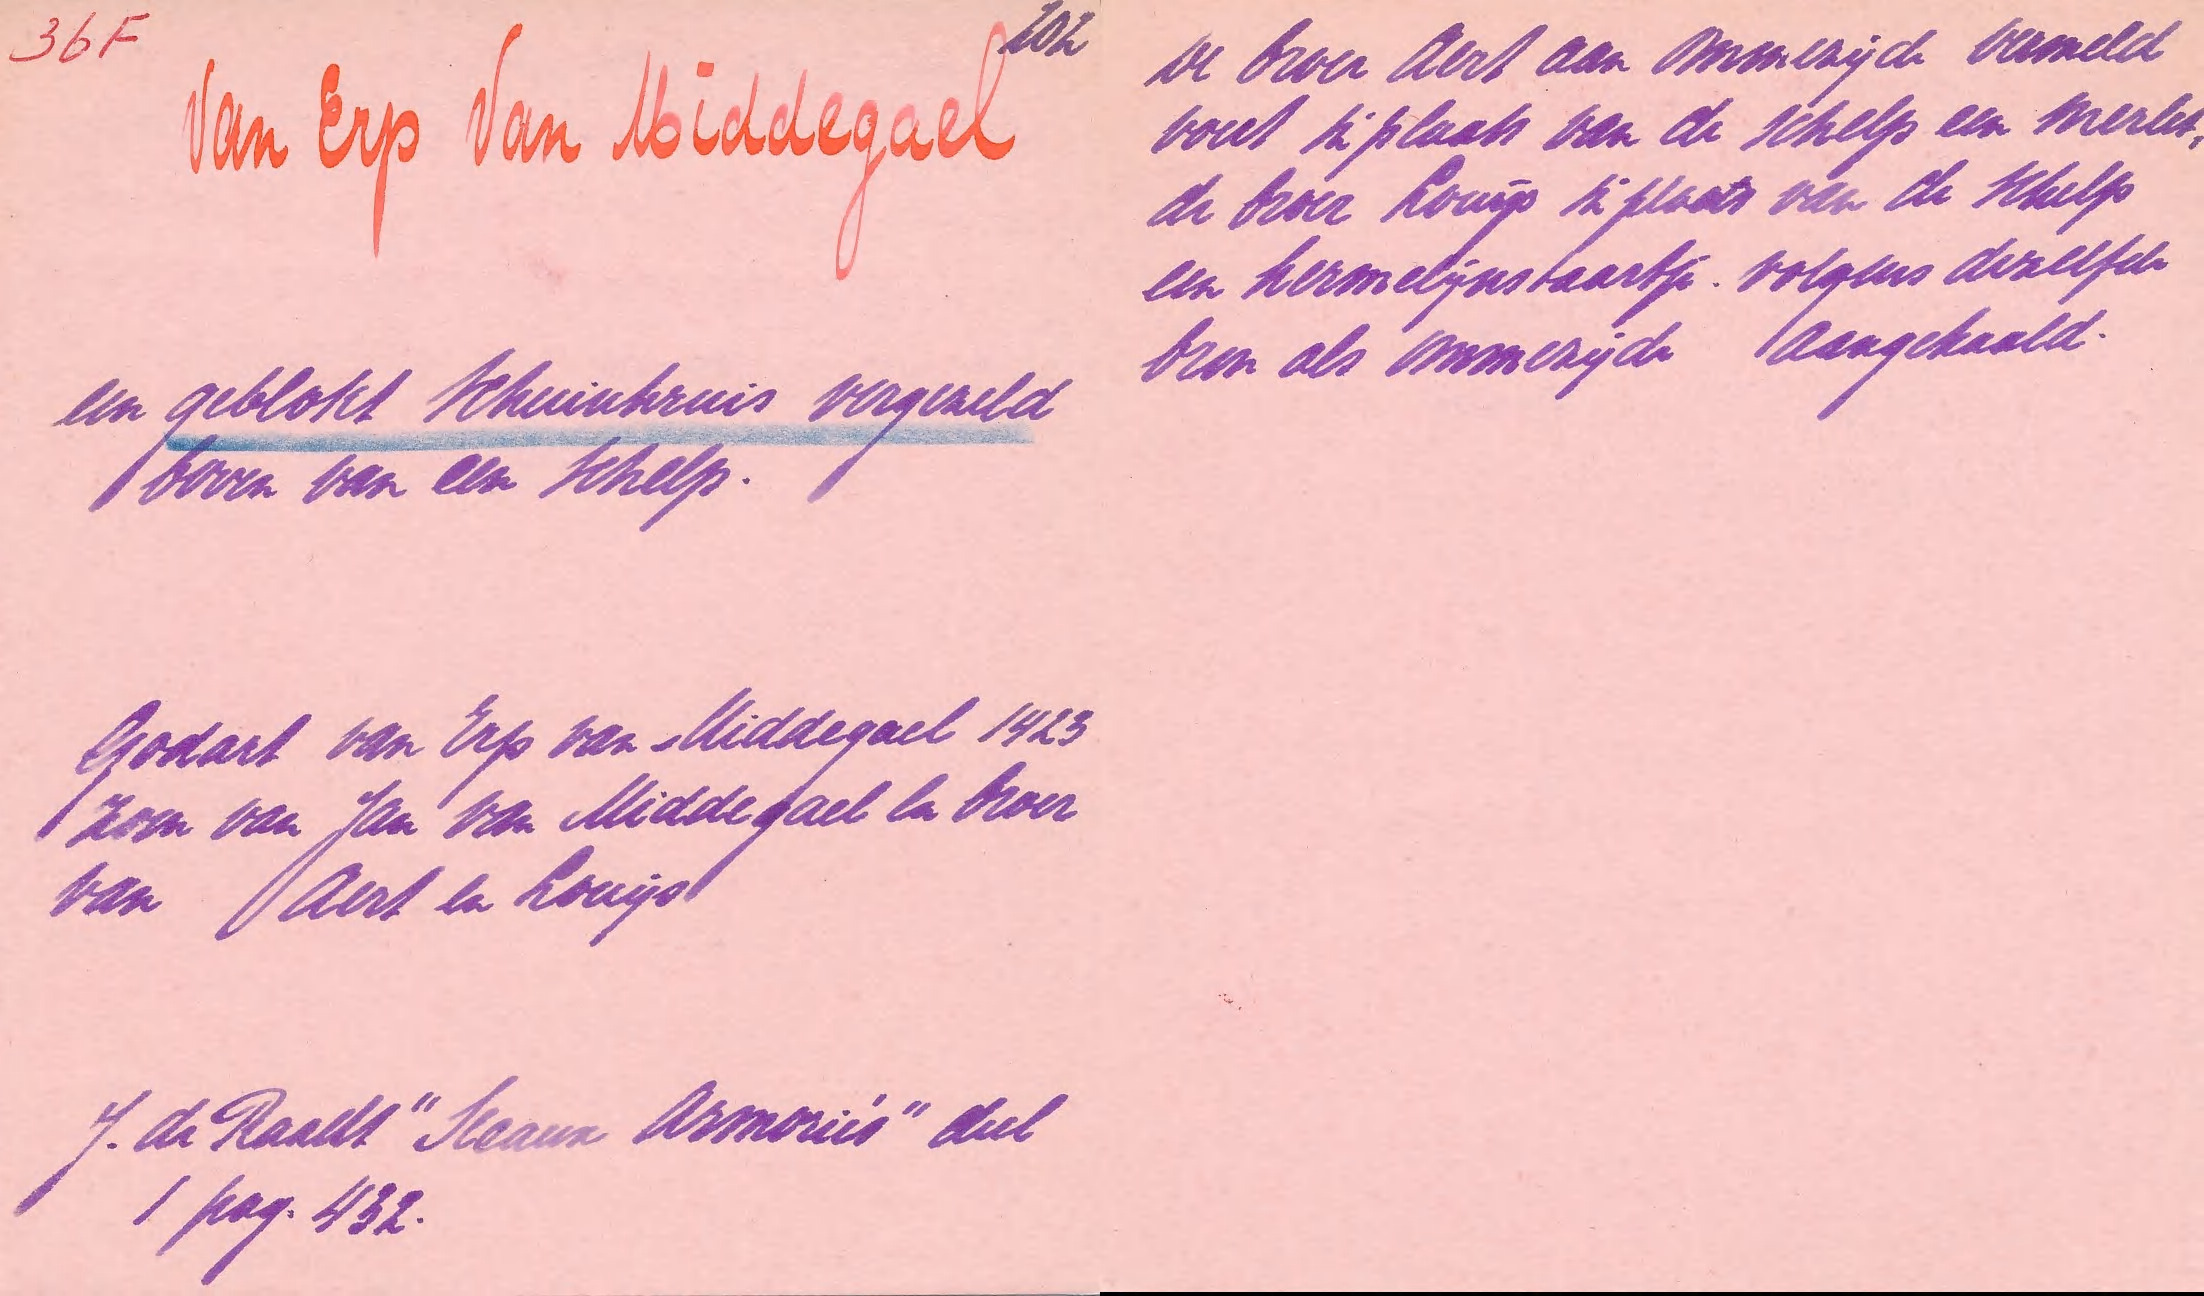 36F
202
Van Erp Van Middegael
een geblokt schuinkruis vergezeld
boven van een schelp.
Godart van Erp van Middegael 1423
zoon van Jan van Middegael en broer
van Aert en Louijs
J. de Raadt "Sceaux Armoriés" deel
1 pag. 432.
De broer Aert aan ommezijde vermeld
voert in plaats van de schelp een merlet,
de broer Louijs in plaats van de schelp
een hermelijnstaartje. volgens dezelfde
bron als ommezijde aangehaald.